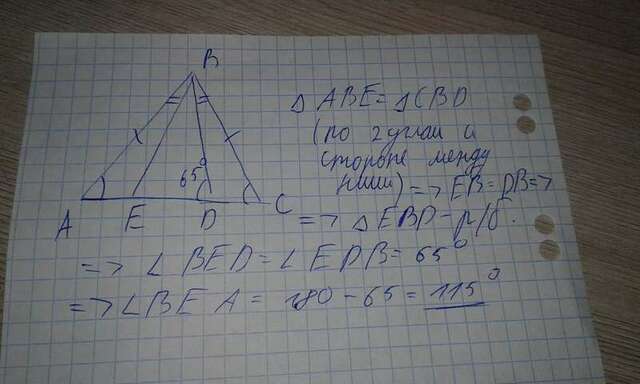 B
65°
A E D C
△ ABE = △ CBD
(по 2 углам и
стороне между
ними) => EB = DB =>
=> △ EBD - р/б.
=> ∠ BED = ∠ EDB = 65°
=> ∠ BEA = 180 - 65 = 115°